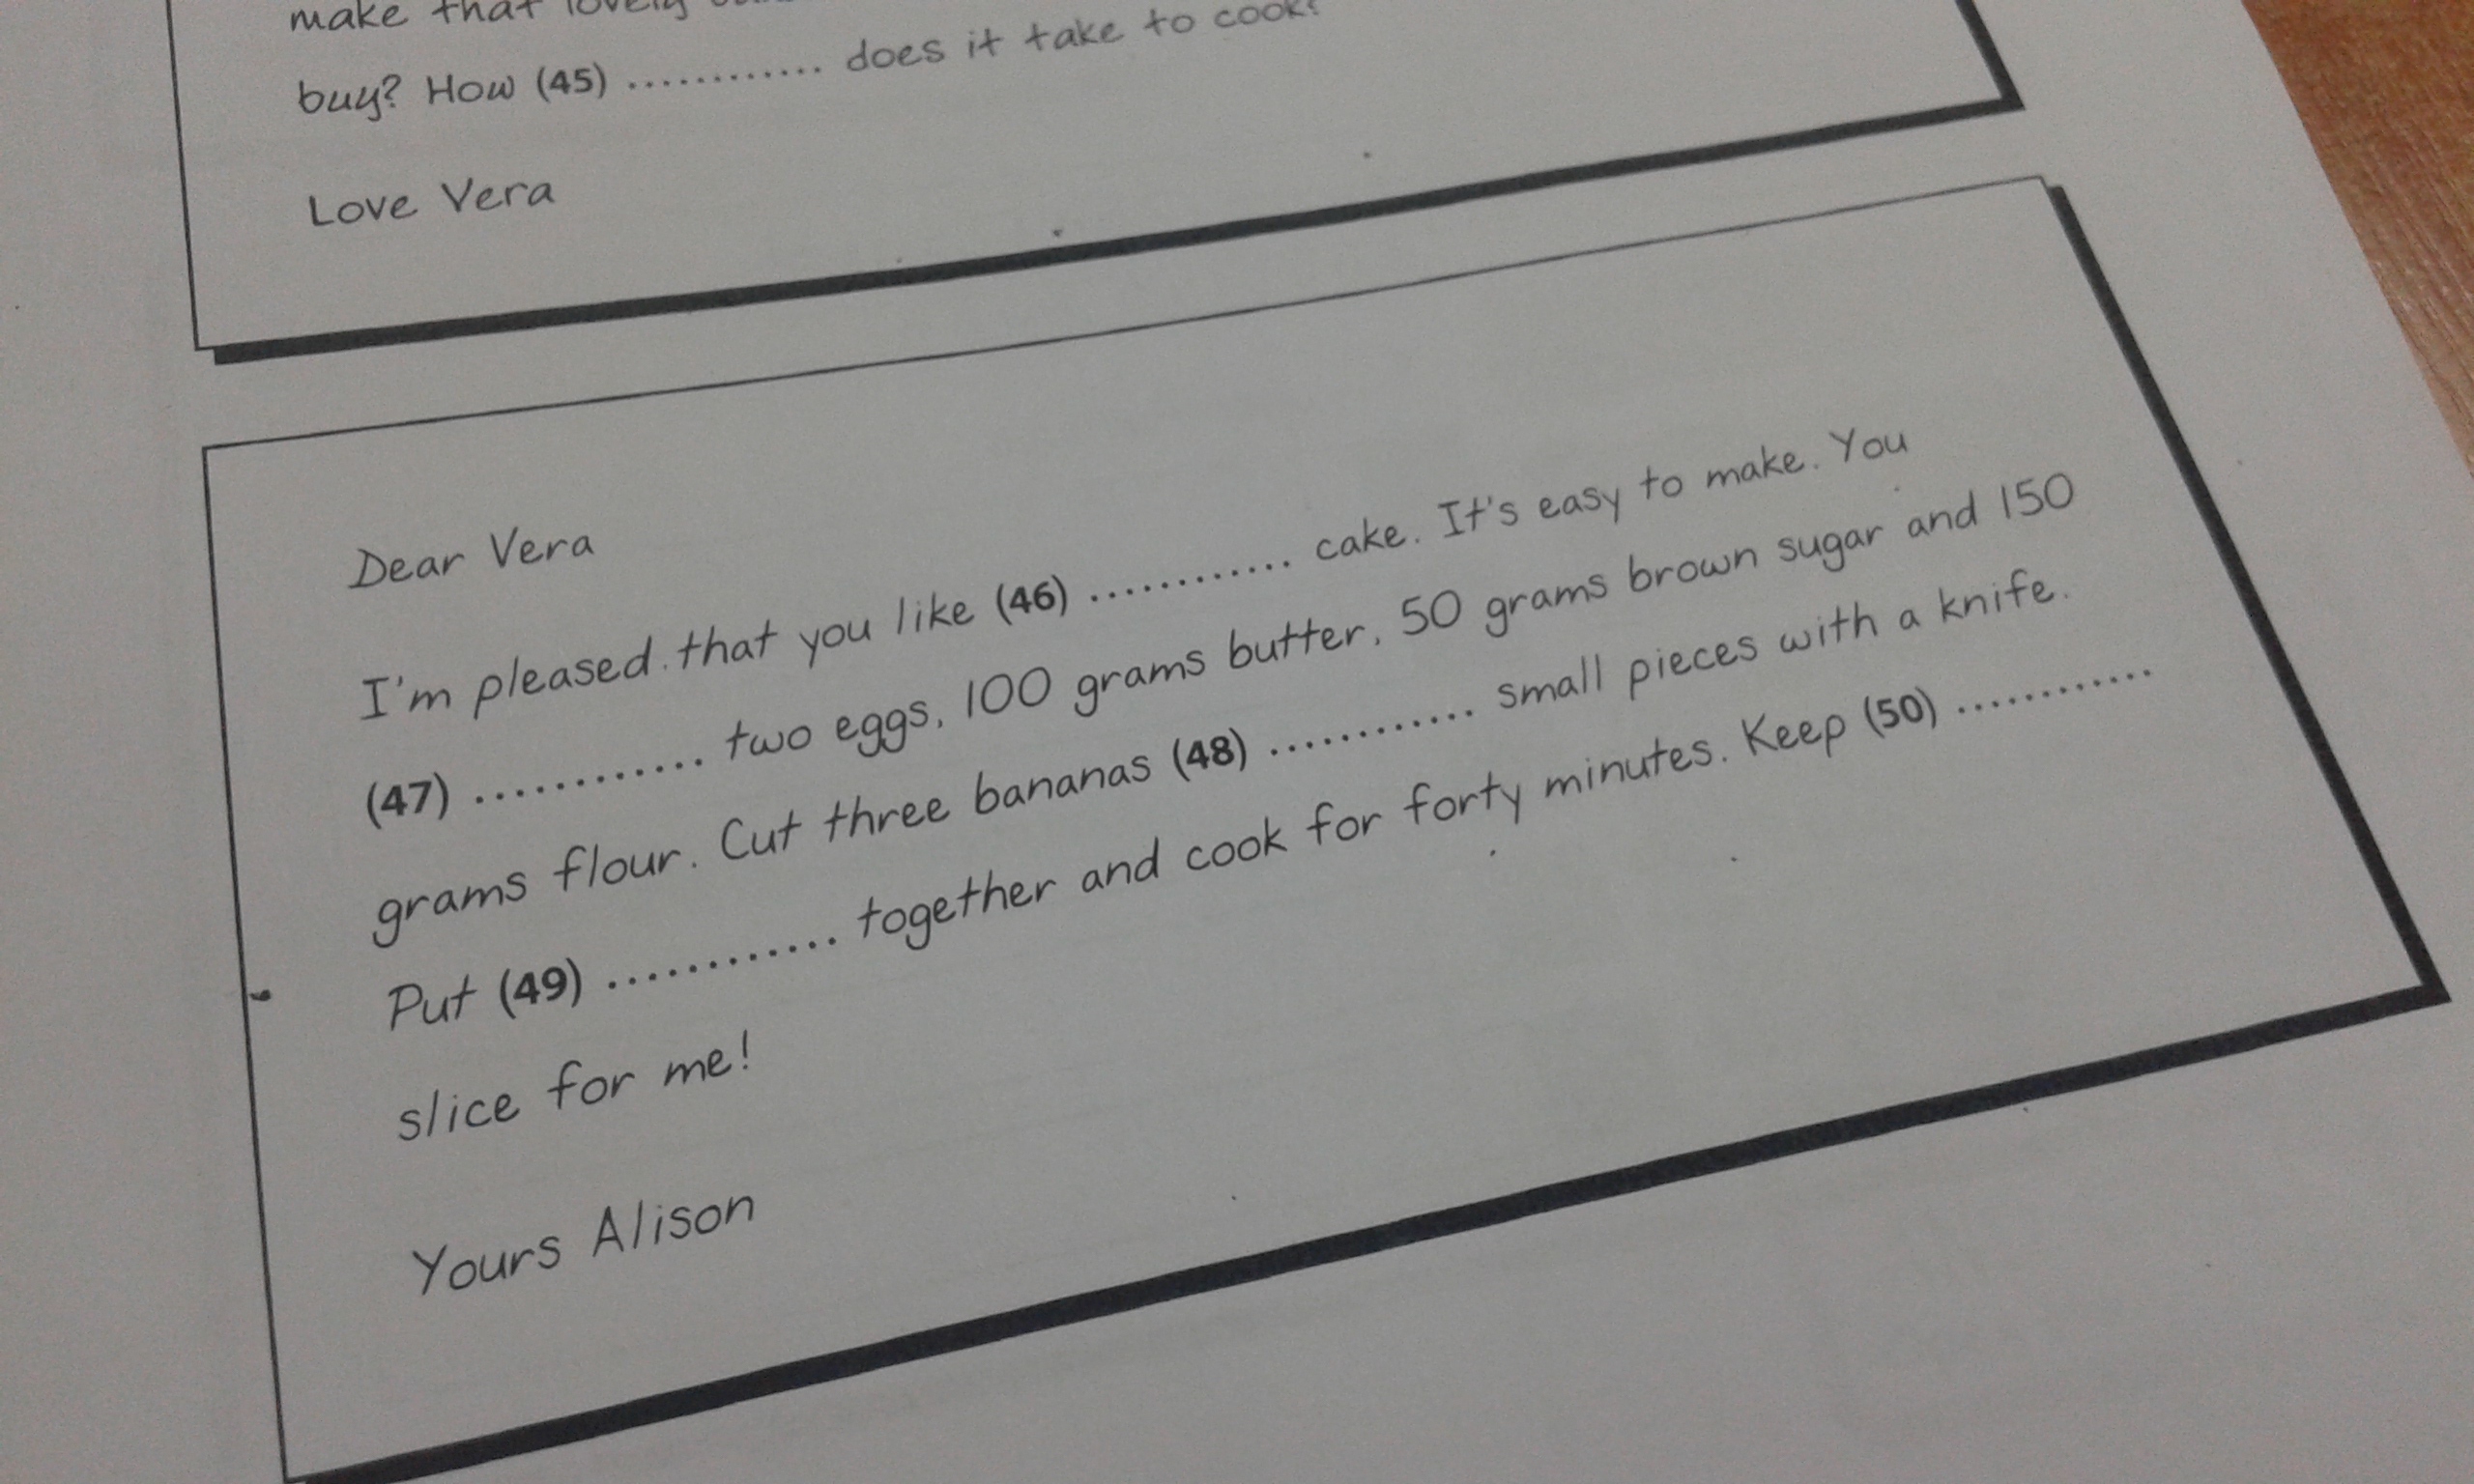 make that lovely
buy? How (45) ............ does it take to cook?
Love Vera
Dear Vera
I'm pleased that you like (46) ............ cake. It's easy to make. You
(47) ............ two eggs, 100 grams butter, 50 grams brown sugar and 150
grams flour. Cut three bananas (48) ............ small pieces with a knife.
Put (49) ............ together and cook for forty minutes. Keep (50) ............
slice for me!
Yours Alison